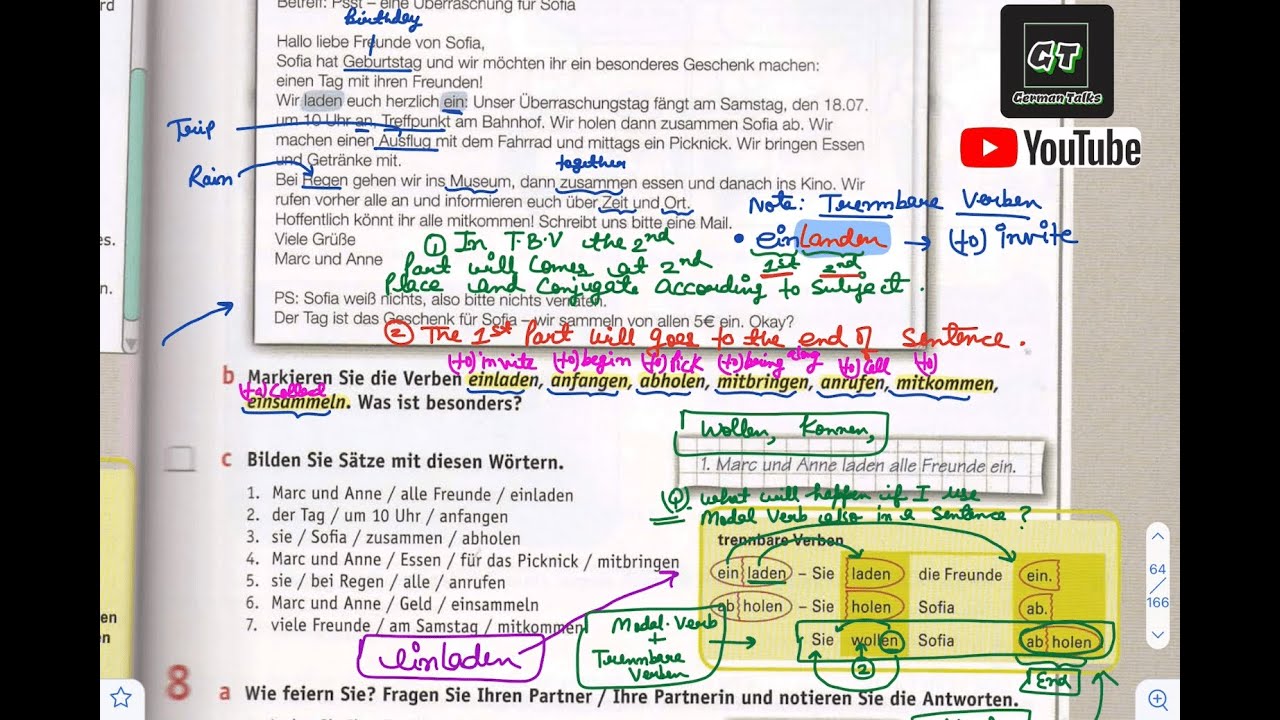 Betreff: Psst – eine Überraschung für Sofia
Birthday
Hallo liebe Freunde von Sofia,
Sofia hat Geburtstag und wir möchten ihr ein besonderes Geschenk machen:
einen Tag mit ihren Freunden!
Wir laden euch herzlich ein: Unser Überraschungstag fängt am Samstag, den 18.07.
um 10 Uhr an, Treffpunkt am Bahnhof. Wir holen dann zusammen Sofia ab. Wir
Trip
machen einen Ausflug mit dem Fahrrad und mittags ein Picknick. Wir bringen Essen
und Getränke mit.
together
Rain
Bei Regen gehen wir ins Museum, dann zusammen essen und danach ins Kino. Wir
rufen vorher alle an und informieren euch über Zeit und Ort.
Hoffentlich könnt ihr alle mitkommen! Schreibt uns bitte eine Mail.
Viele Grüße
Marc und Anne
PS: Sofia weiß nichts, also bitte nichts verraten.
Der Tag ist das Geschenk für Sofia – wir sammeln von allen 5€ ein. Okay?
GT
German Talks
YouTube
Note: Trennbare Verben
• einlanden → (to) invite
1st 2nd
① In T.B.V the 2nd
part will comes at 2nd
place and conjugate according to subject.
② The 1st part will goes to the end of sentence.
(to) invite (to) begin (to) pick (to) bring along (to) call (to)
b Markieren Sie die Verben einladen, anfangen, abholen, mitbringen, anrufen, mitkommen,
(to) collect
einsammeln. Was ist besonders?
Wollen, Konnen,
c Bilden Sie Sätze mit diesen Wörtern.
1. Marc und Anne laden alle Freunde ein.
1. Marc und Anne / alle Freunde / einladen
2. der Tag / um 10 Uhr / anfangen
3. sie / Sofia / zusammen / abholen
4. Marc und Anne / Essen / für das Picknick / mitbringen
5. sie / bei Regen / alle / anrufen
6. Marc und Anne / Geld / einsammeln
7. viele Freunde / am Samstag / mitkommen
Q. what will happen if I use
Modal Verb also in a sentence?
trennbare Verben
ein laden – Sie laden die Freunde ein.
ab holen – Sie holen Sofia ab.
Sie wollen Sofia ab holen
②
End
Modal Verb
+
Trennbare
Verben
einladen
64
166
8 a Wie feiern Sie? Fragen Sie Ihren Partner / Ihre Partnerin und notieren Sie die Antworten.